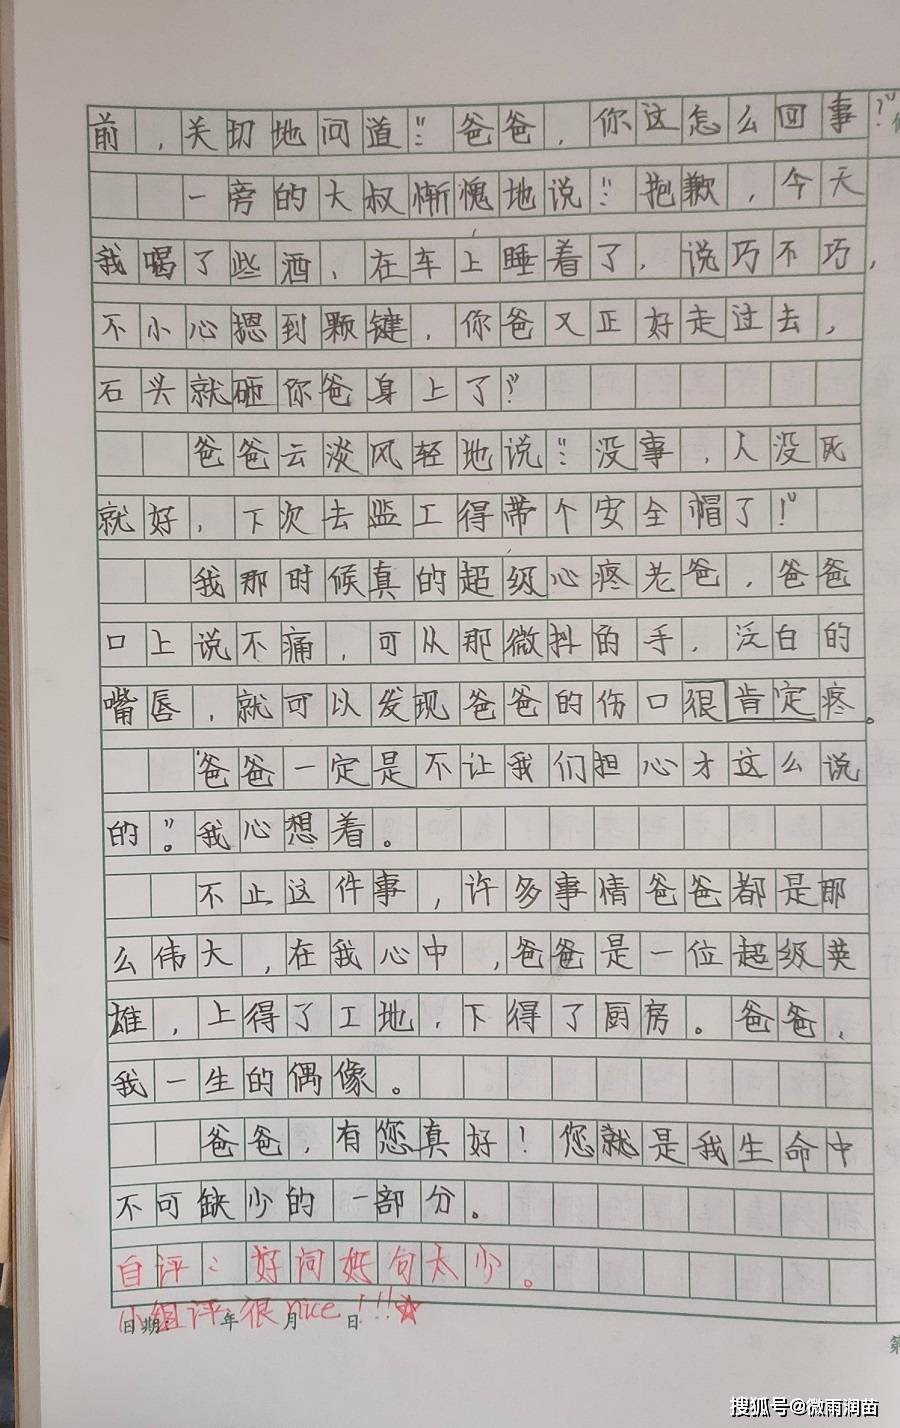 前，关切地问道：“爸爸，你这怎么回事？”
一旁的大叔惭愧地说：“抱歉，今天
我喝了些酒，在车上睡着了，说巧不巧，
不小心摁到颗键，你爸又正好走过去，
石头就砸你爸身上了”
爸爸云淡风轻地说：“没事，人没死
就好，下次去监工得带个安全帽了！”
我那时候真的超级心疼老爸，爸爸
口上说不痛，可从那微抖的手，泛白的
嘴唇，就可以发现爸爸的伤口很肯定疼。
“爸爸一定是不让我们担心才这么说
的。”我心想着。
不止这件事，许多事情爸爸都是那
么伟大，在我心中，爸爸是一位超级英
雄，上得了工地，下得了厨房。爸爸，
我一生的偶像。
爸爸，有您真好！您就是我生命中
不可缺少的一部分。
自评：好词好句太少。
小组评：很nice！！！
日期： 年 月 日
第
搜狐号@微雨润苗